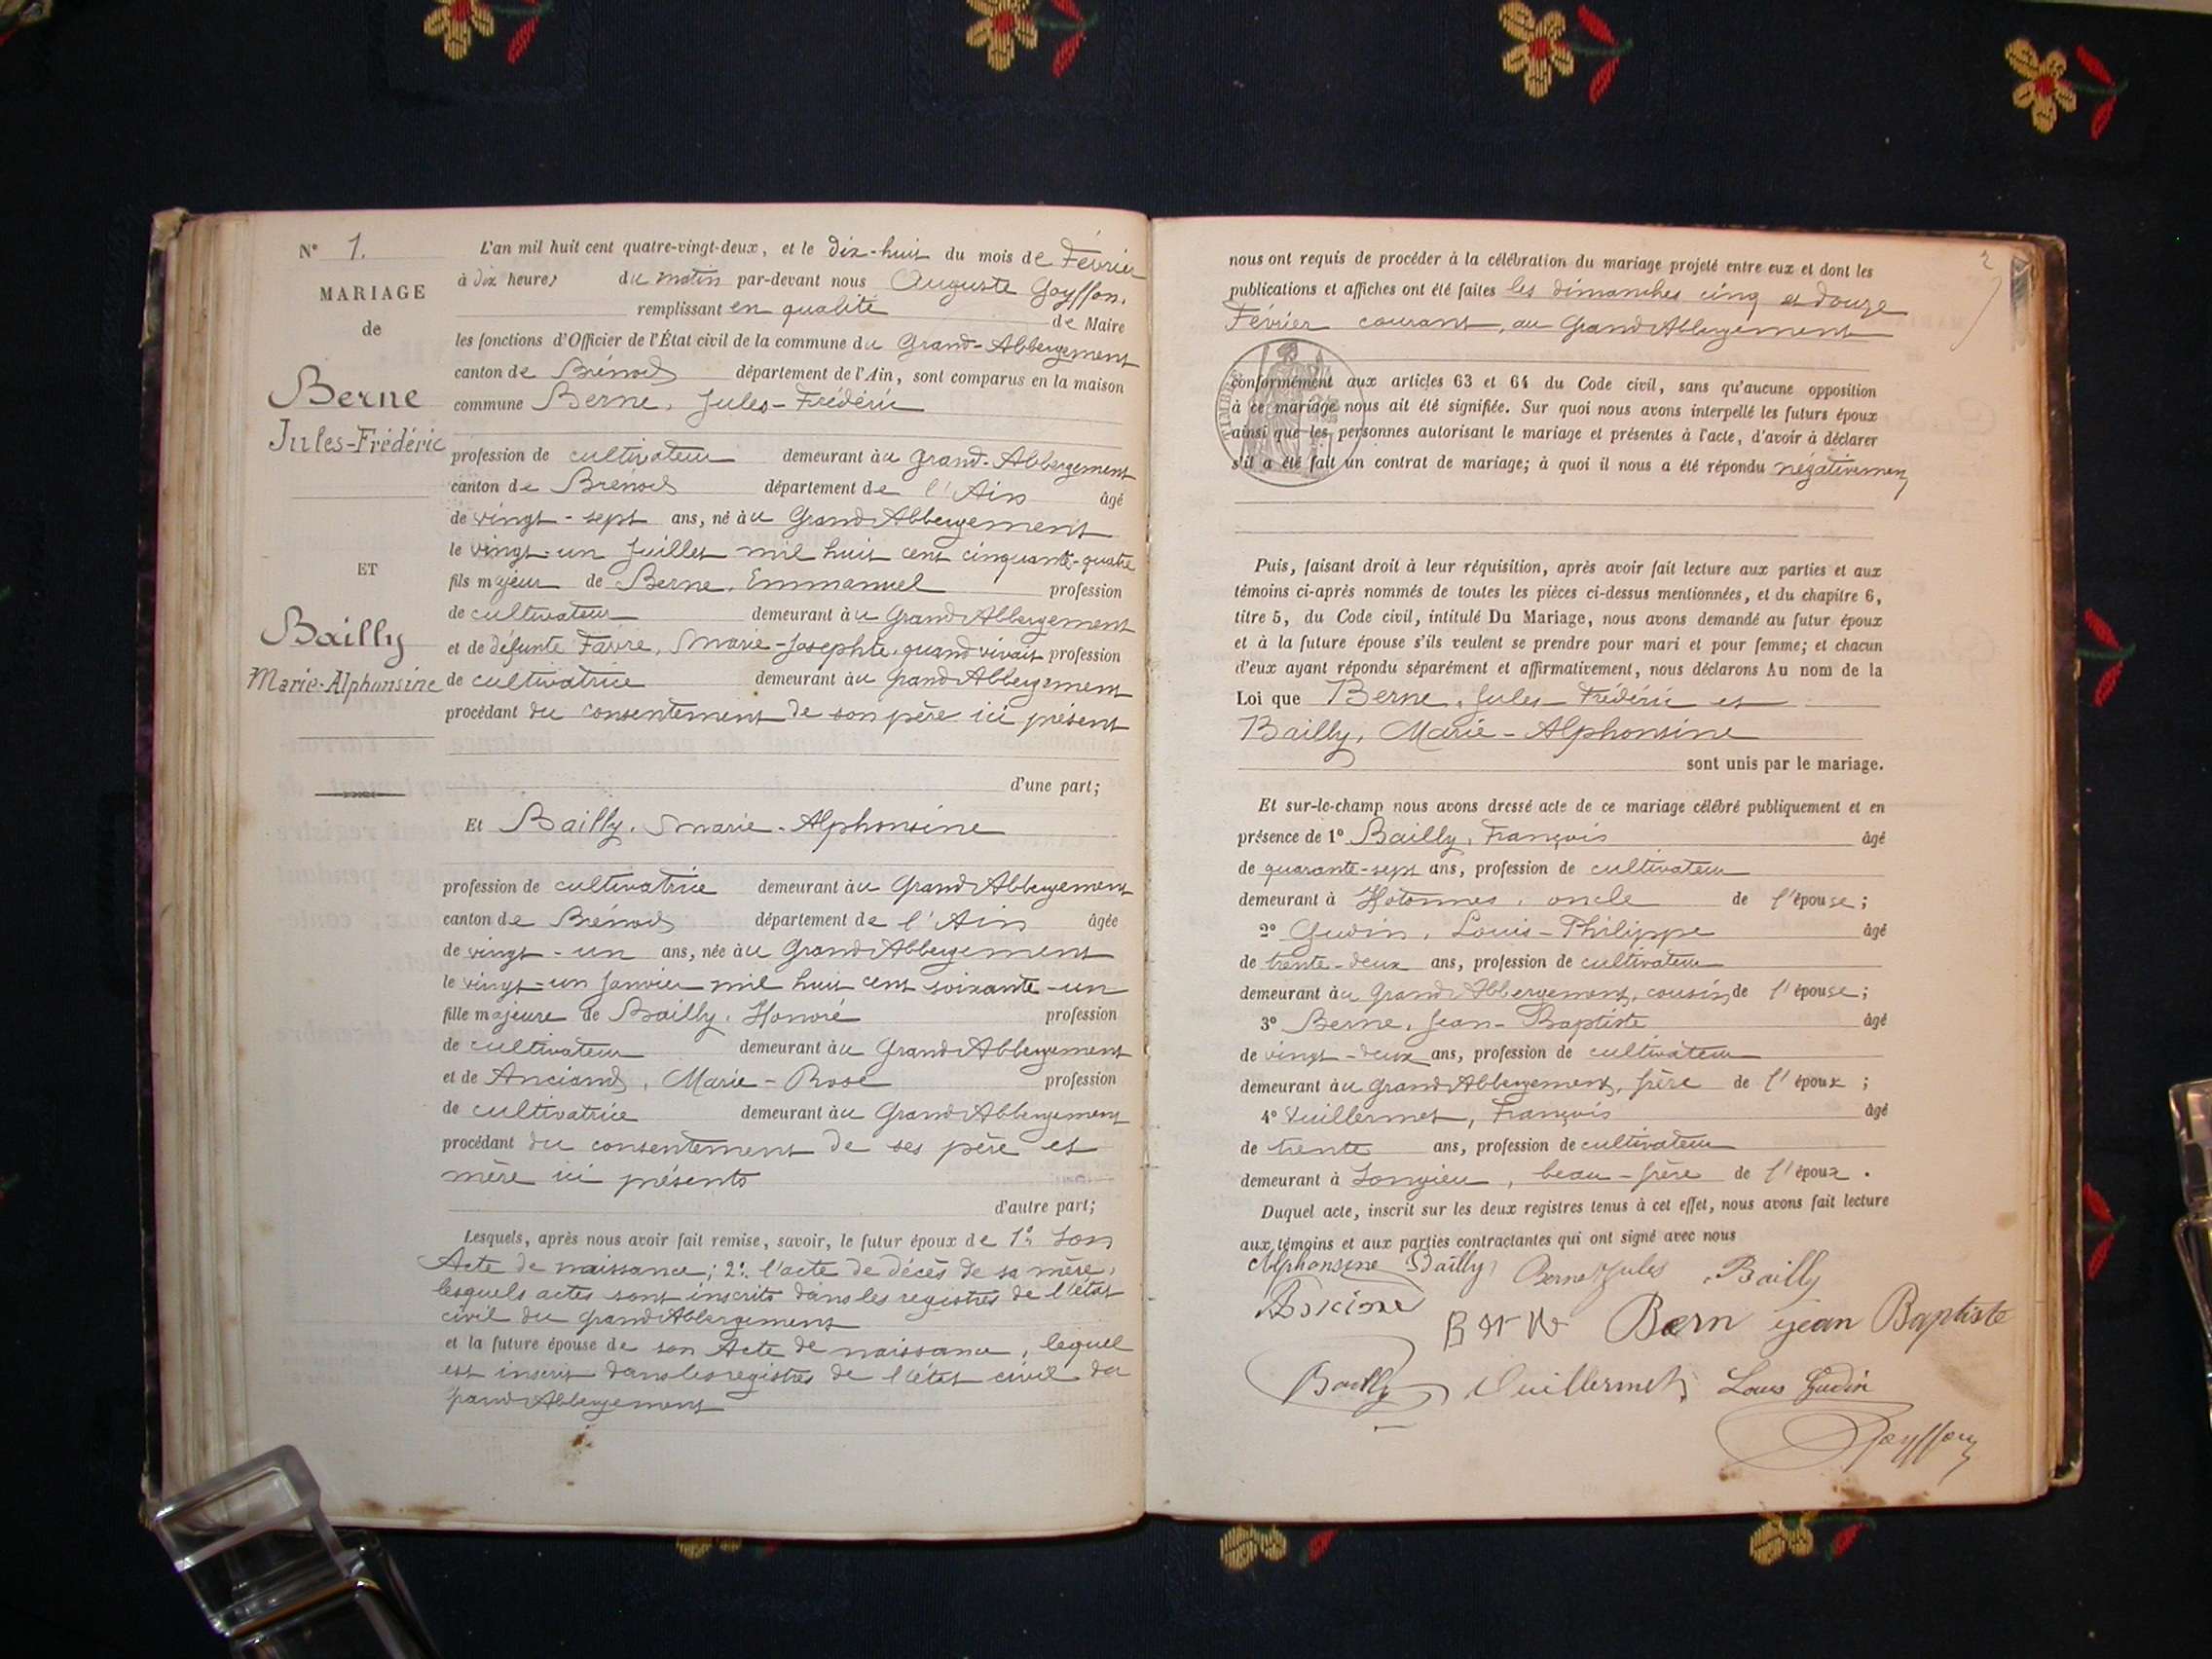 N° 1.
MARIAGE
de
Berne
Jules-Frédéric
ET
Bailly
Marie-Alphonsine
L'an mil huit cent quatre-vingt-deux, et le dix-huit du mois de Février
à dix heures du matin par-devant nous Auguste Goyffon,
remplissant en qualité de Maire
les fonctions d'Officier de l'État civil de la commune du Grand-Abbergement
canton de Brénod département de l'Ain, sont comparus en la maison
commune Berne, Jules-Frédéric
profession de cultivateur demeurant au Grand-Abbergement
canton de Brénod département de l'Ain âgé
de vingt-sept ans, né au Grand Abbergement
le vingt-un Juillet mil huit cent cinquante-quatre
fils majeur de Berne, Emmanuel profession
de cultivateur demeurant au Grand Abbergement
et de défunte Favre, Marie-Josephte, quand vivait profession
de cultivatrice demeurant au Grand Abbergement
procédant du consentement de son père ici présent
d'une part;
Et Bailly, Marie-Alphonsine
profession de cultivatrice demeurant au Grand Abbergement
canton de Brénod département de l'Ain âgée
de vingt-un ans, née au Grand Abbergement
le vingt-un Janvier mil huit cent soixante-un
fille majeure de Bailly, Honoré profession
de cultivateur demeurant au Grand Abbergement
et de Anciand, Marie-Rose profession
de cultivatrice demeurant au Grand Abbergement
procédant du consentement de ses père et
mère ici présents
d'autre part;
Lesquels, après nous avoir fait remise, savoir, le futur époux de 1° Son
Acte de naissance; 2° l'acte de décès de sa mère,
lesquels actes sont inscrits dans les registres de l'état
civil du Grand Abbergement
et la future épouse de son Acte de naissance, lequel
est inscrit dans les registres de l'état civil du
Grand Abbergement
2
nous ont requis de procéder à la célébration du mariage projeté entre eux et dont les
publications et affiches ont été faites les dimanches cinq et douze
Février courant, au Grand Abbergement
TIMBRE
conformément aux articles 63 et 64 du Code civil, sans qu'aucune opposition
à ce mariage nous ait été signifiée. Sur quoi nous avons interpellé les futurs époux
ainsi que les personnes autorisant le mariage et présentes à l'acte, d'avoir à déclarer
s'il a été fait un contrat de mariage; à quoi il nous a été répondu négativement
Puis, faisant droit à leur réquisition, après avoir fait lecture aux parties et aux
témoins ci-après nommés de toutes les pièces ci-dessus mentionnées, et du chapitre 6,
titre 5, du Code civil, intitulé Du Mariage, nous avons demandé au futur époux
et à la future épouse s'ils veulent se prendre pour mari et pour femme; et chacun
d'eux ayant répondu séparément et affirmativement, nous déclarons Au nom de la
Loi que Berne, Jules-Frédéric et
Bailly, Marie-Alphonsine
sont unis par le mariage.
Et sur-le-champ nous avons dressé acte de ce mariage célébré publiquement et en
présence de 1° Bailly, François âgé
de quarante-sept ans, profession de cultivateur
demeurant à Hotonnes, oncle de l'épouse;
2° Gudin, Louis-Philippe âgé
de trente-deux ans, profession de cultivateur
demeurant au Grand Abbergement, cousin de l'épouse;
3° Berne, Jean-Baptiste âgé
de vingt-deux ans, profession de cultivateur
demeurant au Grand Abbergement, frère de l'époux;
4° Vuillermet, François âgé
de trente ans, profession de cultivateur
demeurant à Songieu, beau-frère de l'époux.
Duquel acte, inscrit sur les deux registres tenus à cet effet, nous avons fait lecture
aux témoins et aux parties contractantes qui ont signé avec nous
Alphonsine Bailly Berne Jules Bailly
Bern jean Baptiste
Bailly Vuillermet Louis Gudin
Goyffon